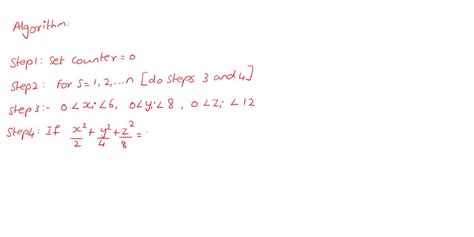 Algorithm:
Step1: Set counter = 0
Step2: For S = 1, 2, ... n [do steps 3 and 4]
Step3:- 0 < xi < 6, 0 < yi < 8, 0 < zi < 12
Step4: If x²/2 + y²/4 + z²/8 =